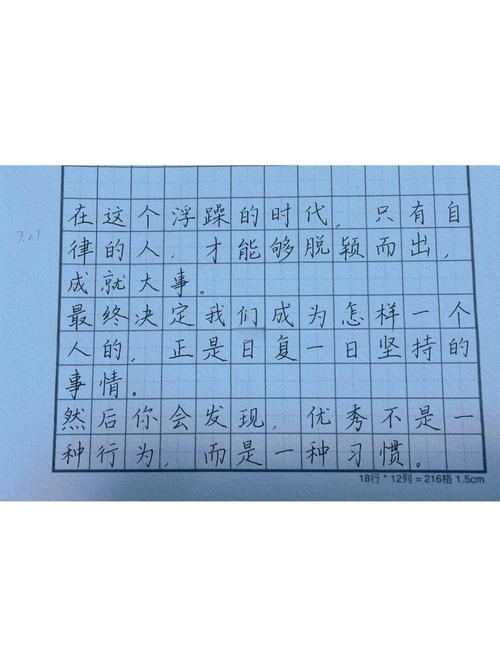 在这个浮躁的时代，只有自
律的人，才能够脱颖而出，
成就大事。
最终决定我们成为怎样一个
人的，正是日复一日坚持的
事情。
然后你会发现，优秀不是一
种行为，而是一种习惯。
18行 * 12列 = 216格 1.5cm